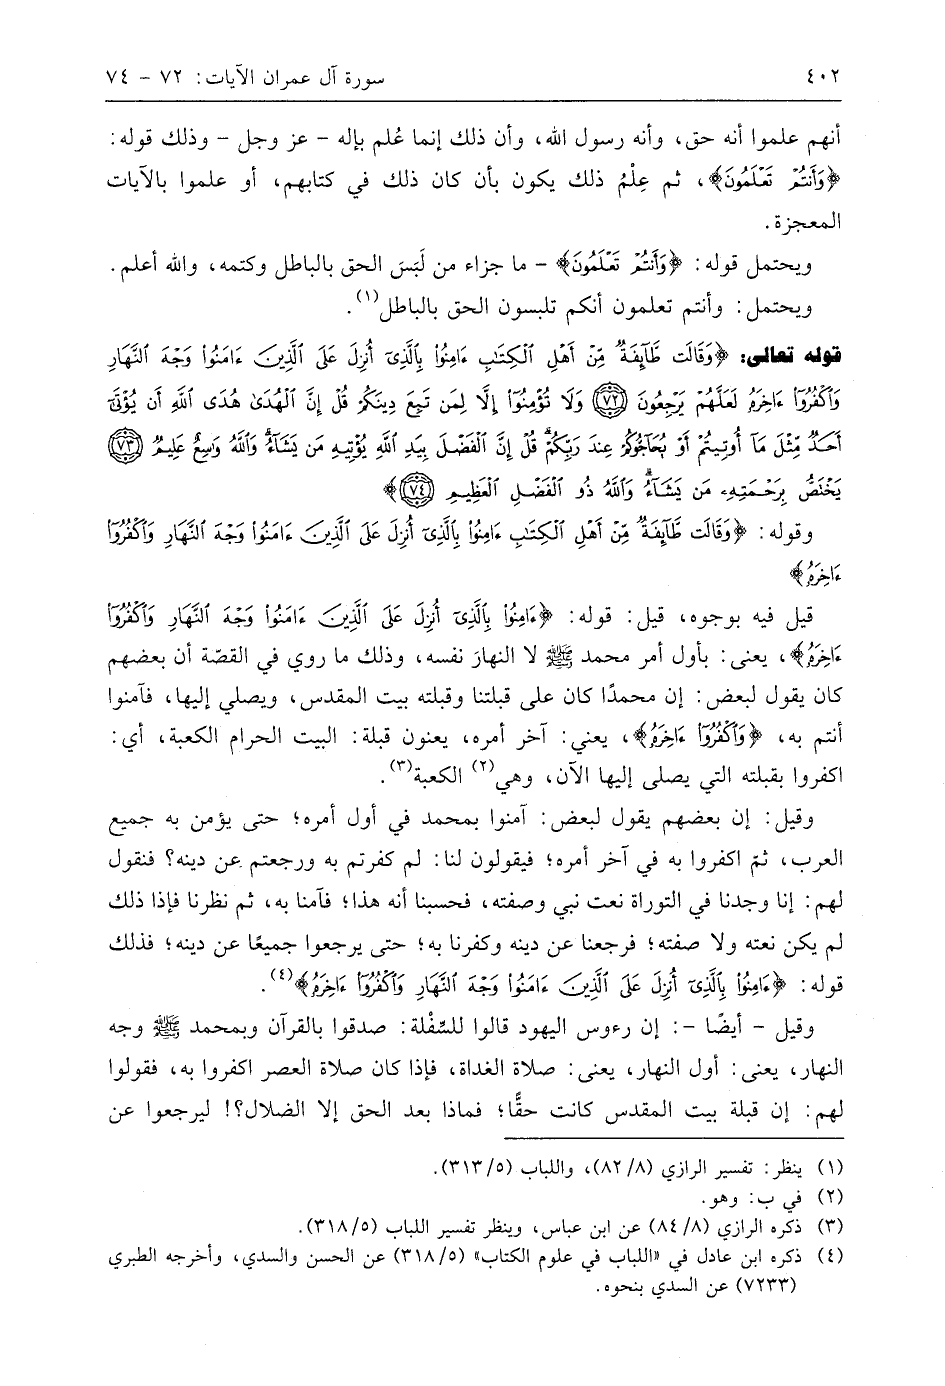 ٤٠٢ سورة آل عمران الآيات: ٧٢ - ٧٤
أنهم علموا أنه حق، وأنه رسول الله، وأن ذلك إنما عُلم بإله - عز وجل - وذلك قوله:
﴿وَأَنتُمْ تَعْلَمُونَ﴾، ثم عِلْمُ ذلك يكون بأن كان ذلك في كتابهم، أو علموا بالآيات
المعجزة.
ويحتمل قوله: ﴿وَأَنتُمْ تَعْلَمُونَ﴾ - ما جزاء من لَبَسَ الحق بالباطل وكتمه، والله أعلم.
ويحتمل: وأنتم تعلمون أنكم تلبسون الحق بالباطل(١).
قوله تعالى: ﴿وَقَالَت طَّآئِفَةٌ مِّنْ أَهْلِ ٱلْكِتَٰبِ ءَامِنُوا۟ بِٱلَّذِىٓ أُنزِلَ عَلَى ٱلَّذِينَ ءَامَنُوا۟ وَجْهَ ٱلنَّهَارِ
وَٱكْفُرُوٓا۟ ءَاخِرَهُۥ لَعَلَّهُمْ يَرْجِعُونَ ﴿٧٢﴾ وَلَا تُؤْمِنُوٓا۟ إِلَّا لِمَن تَبِعَ دِينَكُمْ قُلْ إِنَّ ٱلْهُدَىٰ هُدَى ٱللَّهِ أَن يُؤْتَىٰٓ
أَحَدٌ مِّثْلَ مَآ أُوتِيتُمْ أَوْ يُحَآجُّوكُمْ عِندَ رَبِّكُمْ ۗ قُلْ إِنَّ ٱلْفَضْلَ بِيَدِ ٱللَّهِ يُؤْتِيهِ مَن يَشَآءُ ۗ وَٱللَّهُ وَٰسِعٌ عَلِيمٌ ﴿٧٣﴾
يَخْتَصُّ بِرَحْمَتِهِۦ مَن يَشَآءُ ۗ وَٱللَّهُ ذُو ٱلْفَضْلِ ٱلْعَظِيمِ ﴿٧٤﴾﴾
وقوله: ﴿وَقَالَت طَّآئِفَةٌ مِّنْ أَهْلِ ٱلْكِتَٰبِ ءَامِنُوا۟ بِٱلَّذِىٓ أُنزِلَ عَلَى ٱلَّذِينَ ءَامَنُوا۟ وَجْهَ ٱلنَّهَارِ وَٱكْفُرُوٓا۟
ءَاخِرَهُۥ﴾
قيل فيه بوجوه، قيل: قوله: ﴿ءَامِنُوا۟ بِٱلَّذِىٓ أُنزِلَ عَلَى ٱلَّذِينَ ءَامَنُوا۟ وَجْهَ ٱلنَّهَارِ وَٱكْفُرُوٓا۟
ءَاخِرَهُۥ﴾، يعني: بأول أمر محمد ﷺ لا النهارَ نفسه، وذلك ما روي في القصّة أن بعضهم
كان يقول لبعض: إن محمدًا كان على قبلتنا وقبلته بيت المقدس، ويصلي إليها، فآمنوا
أنتم به، ﴿وَٱكْفُرُوٓا۟ ءَاخِرَهُۥ﴾، يعني: آخر أمره، يعنون قبلة: البيت الحرام الكعبة، أي:
اكفروا بقبلته التي يصلى إليها الآن، وهي(٢) الكعبة(٣).
وقيل: إن بعضهم يقول لبعض: آمنوا بمحمد في أول أمره؛ حتى يؤمن به جميع
العرب، ثمّ اكفروا به في آخر أمره؛ فيقولون لنا: لم كفرتم به ورجعتم عن دينه؟ فنقول
لهم: إنا وجدنا في التوراة نعت نبي وصفته، فحسبنا أنه هذا؛ فآمنا به، ثم نظرنا فإذا ذلك
لم يكن نعته ولا صفته؛ فرجعنا عن دينه وكفرنا به؛ حتى يرجعوا جميعًا عن دينه؛ فذلك
قوله: ﴿ءَامِنُوا۟ بِٱلَّذِىٓ أُنزِلَ عَلَى ٱلَّذِينَ ءَامَنُوا۟ وَجْهَ ٱلنَّهَارِ وَٱكْفُرُوٓا۟ ءَاخِرَهُۥ﴾(٤).
وقيل - أيضًا -: إن رءوس اليهود قالوا للسِّفْلة: صدقوا بالقرآن وبمحمد ﷺ وجه
النهار، يعني: أول النهار، يعني: صلاة الغداة، فإذا كان صلاة العصر اكفروا به، فقولوا
لهم: إن قبلة بيت المقدس كانت حقًّا؛ فماذا بعد الحق إلا الضلال؟! ليرجعوا عن
(١) ينظر: تفسير الرازي (٨/ ٨٢)، واللباب (٥/ ٣١٣).
(٢) في ب: وهو.
(٣) ذكره الرازي (٨/ ٨٤) عن ابن عباس، وينظر تفسير اللباب (٥/ ٣١٨).
(٤) ذكره ابن عادل في «اللباب في علوم الكتاب» (٥/ ٣١٨) عن الحسن والسدي، وأخرجه الطبري
(٧٢٣٣) عن السدي بنحوه.